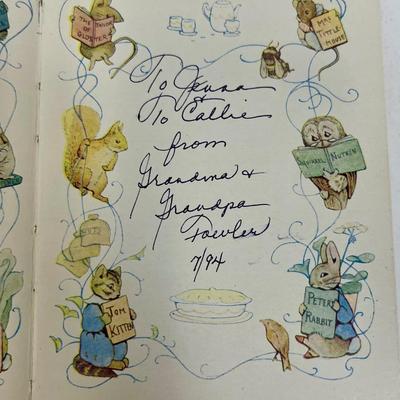 THE TAILOR
OF GLOSTER
MRS
TITTLE
MOUSE
To Jenna
&
To Callie
from
Grandma &
Grandpa
Fowler
7/94
SQUIRREL NUTKIN
NUTS
TOM
KITTEN
PETER
RABBIT